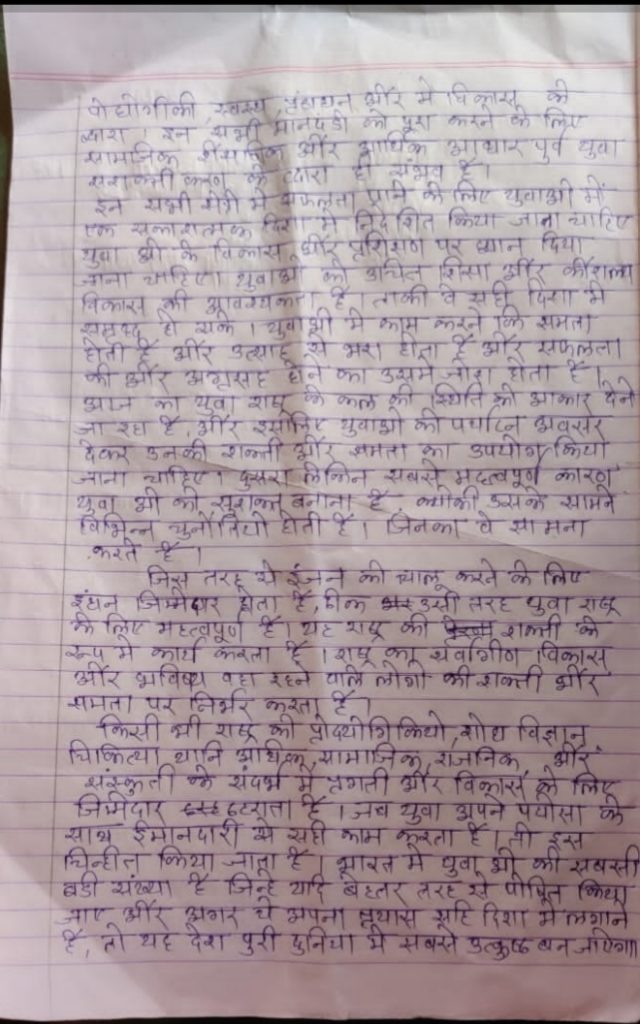 द्वारा । इन सभी मानदंडो को पुरा करने के लिए
सामाजिक शैक्षणिक और आर्थिक आधार पुर्व युवा
सशक्ती करण के द्वारा ही संभव है।
इन सभी क्षेत्रो मे सफलता प्राप्ने के लिए युवाओ में
एक सकारात्मक दिशा मे निर्देशित किया जाना चाहिए
युवा ओ के विकास और प्रशिक्षण पर ध्यान दिया
जाना चाहिए। युवाओ को उचित शिक्षा और कौशल्य
विकास की आवश्यकता है । ताकी वे सही दिशा मे
हो सके । युवाओ मे काम करने कि क्षमता
होती है और उत्साह से भरा होता है और सफलता
की और अग्रसह होने का उसमे जोश होता है।
आज का युवा राष्ट्र के कल की स्थिति को आकार देने
जा रहा है, और इसलिए युवाओ को पर्याप्न अवसर
देकर उनकी शक्ती और क्षमता का उपयोग किया
जाना चाहिए । दुसरा लेकिन सबसे महत्वपुर्ण कारण
युवा ओ को सुशक्त बनाना है क्योकी उसके सामने
विभिन्न चुनौतियो होती है । जिनका वे सामना
करते है ।
जिस तरह से इंजन को चालू करने के लिए
इंधन जिम्मेदार होता है, ठीक उसी तरह युवा राष्ट्र
के लिए महत्वपुर्ण है। यह राष्ट्र की शक्ती के
रूप मे कार्य करता है । राष्ट्र का सर्वागीण विकास
और भविष्य वहा रहने वाले लोगो की शक्ती और
क्षमता पर निर्भर करता है।
किसी भी राष्ट्र की प्रोदयोगिकियो, शोध विज्ञान,
चिकित्या यानि आर्थिक, सामाजिक, राजनिक, और
संस्कृती के संदर्भ मे प्रगती और विकास के लिए
जिमेदार ठहराता है । जब युवा अपने प्रयासो के
साथ ईमानदारी से सही काम करता है । तो इस
चिन्हीत किया जाता है । भारत मे युवा ओ की सबसी
बडी संख्या है जिन्हे यदि बेहतर तरह से पोषित किया
जाए और अगर वे अपना प्रयास सहि दिशा मे लगाने
है, तो यह देश पुरी दुनिया मे सबसे उत्कृष्ठ बन जाऐगा।